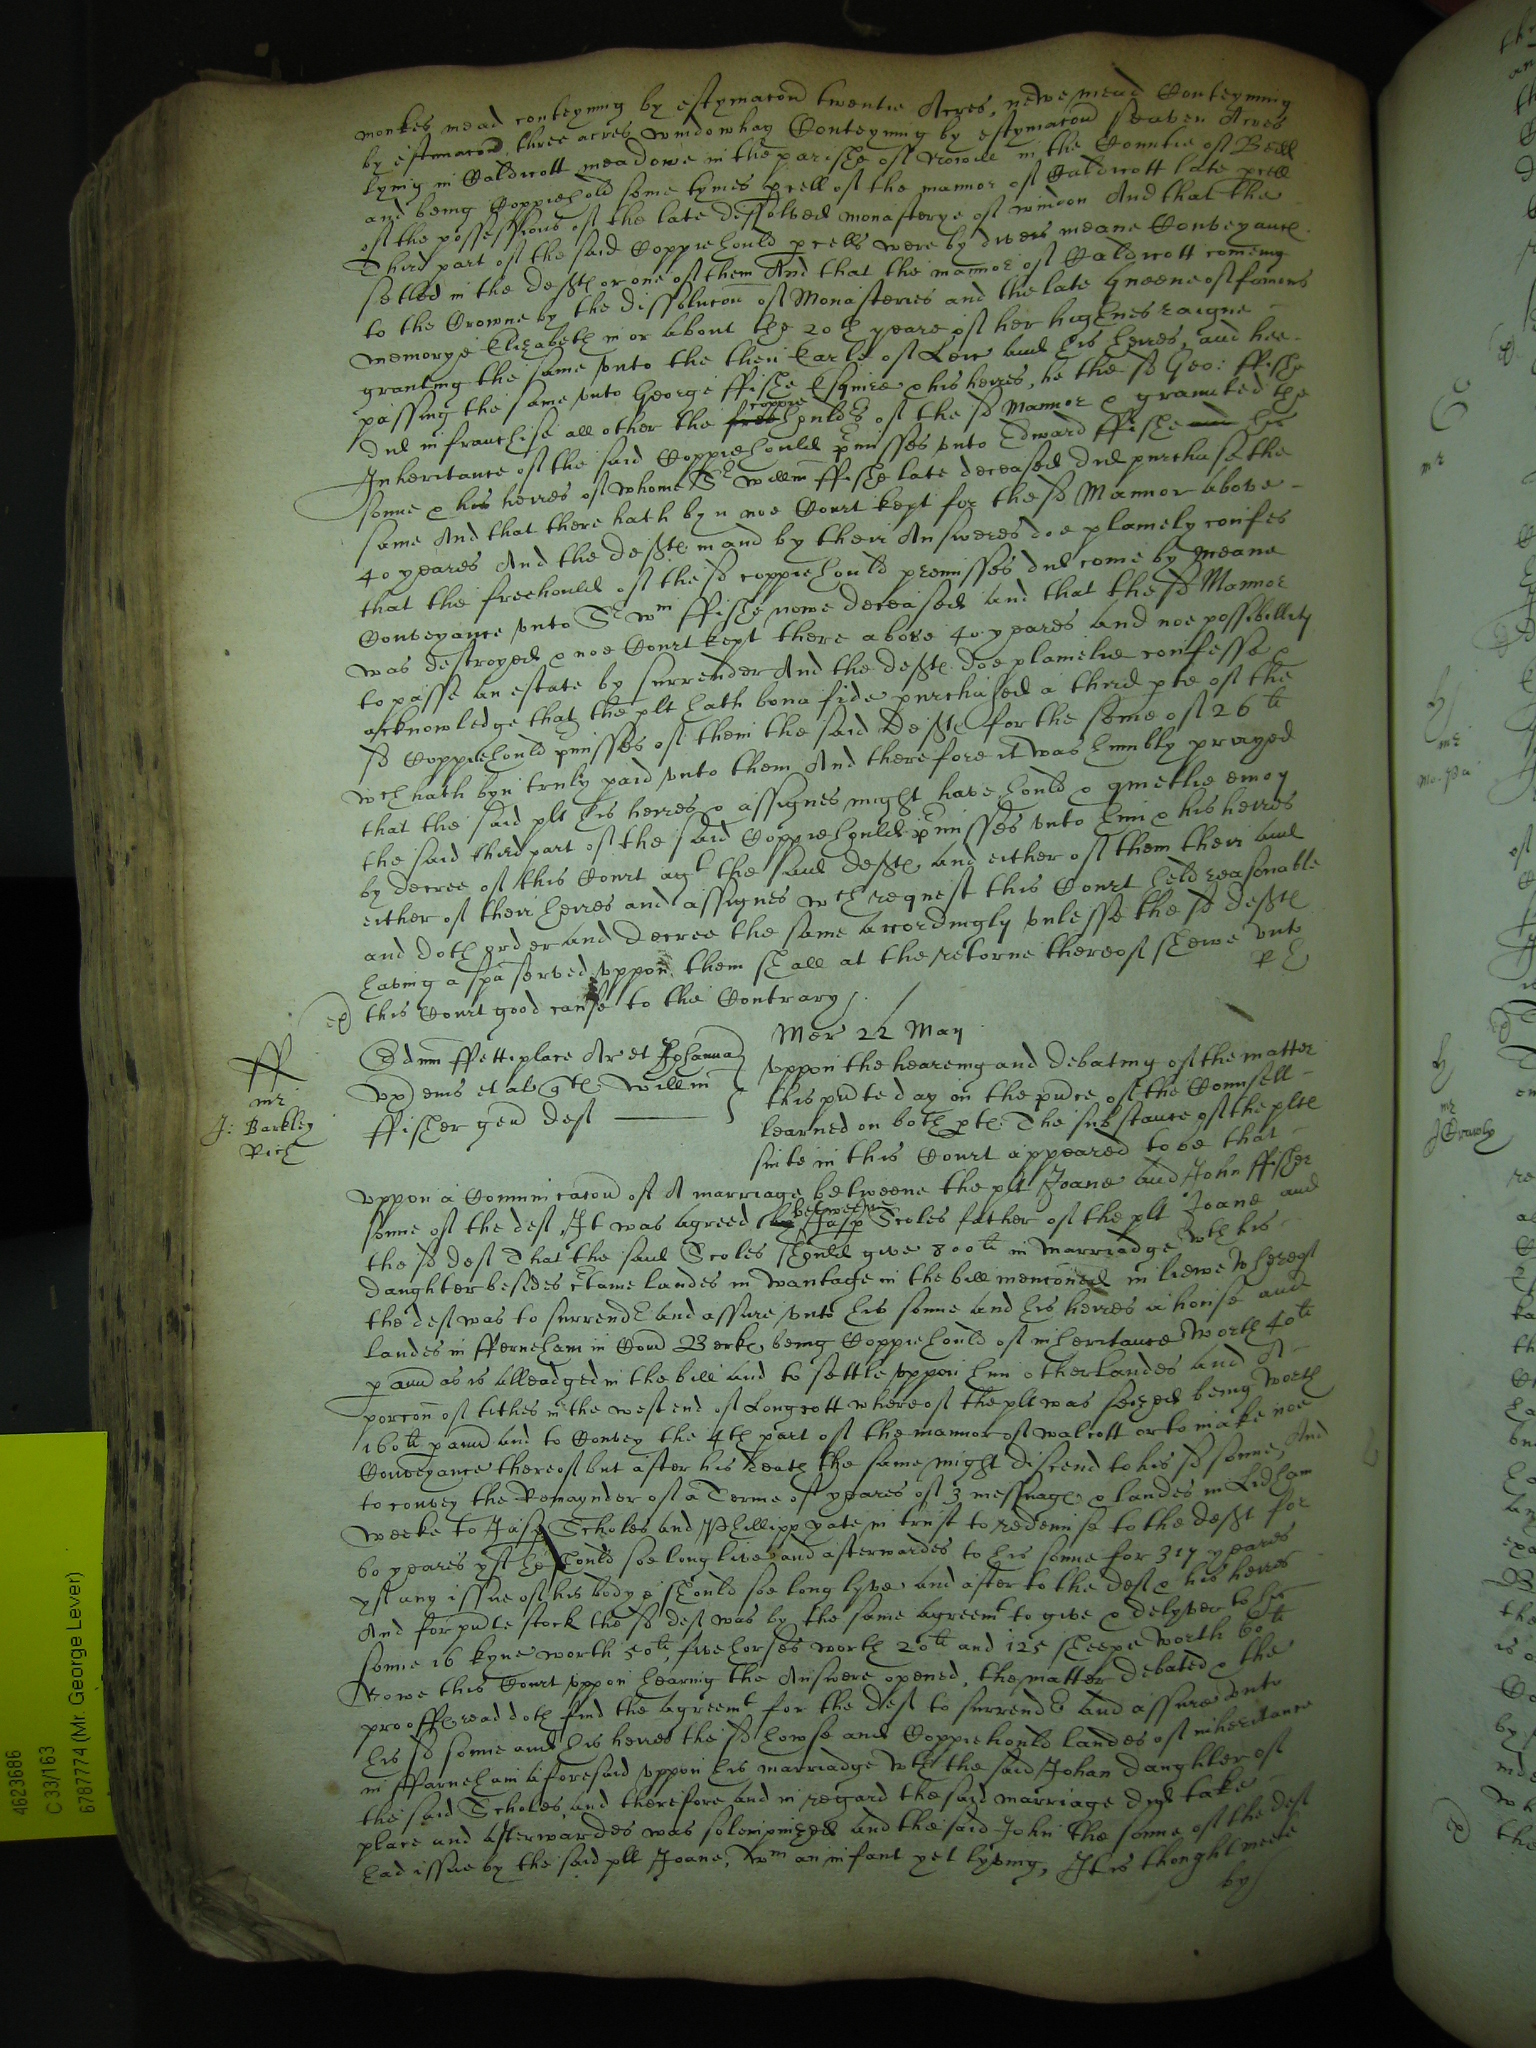 monkes mead conteyning by estymacon twentie Acres, newe mead Conteyning
by estimacon three acres windowhay Conteyning by estymacon seaven Acres
lying in Caldicott meadowe in the parishe of in the Countie of Bedd
and being Coppiehold some tymes pcell of the mannor of Caldicott late pcell
of the possessions of the late dissolved monasterye of And that the
Third part of the said Coppiehould pcells were by divers meane Conveyance
setled in the defts or one of them And that the mannor of Caldicott coming
to the Crowne by the dissolucon of Monasteries and the late Queene of famous
memorye Elizabeth in or about the 20th yeare of her highnes raigne
granting the same unto the then Earle of and his heires, and hee
passing the same unto George ffishe Esquire & his heires, he the sd Geo: ffishe
did infranchise all other the free coppie houlds of the sd Mannor & graunted the
Inheritance of the said Coppiehould pmisses unto Edward ffishe his
sonne & his heires of whome Sr willm ffishe late deceased did purchase the
same And that there hath byn noe Court kept for the sd Mannor above
40 yeares And the defts in and by their Answeres doe plainely confes
that the freehould of the sd coppiehould premisses did come by meane
Conveyance unto Sr Wm ffishe nowe deceased and that the sd Mannor
was destroyed & noe Court kept there above 40 yeares and noe possibillity
to passe an estate by surrender And the defts doe plainelie confesse &
acknowledge that the plt hath bona fide purchased a third pte of the
sd Coppiehould pmisses of them the said defts for the some of 26li
wch hath byn truly paid unto them And therefore it was humbly prayed
that the said plt his heires & assignes might have hould & quietlie enioy
the said third part of the said Coppiehould pmisses unto him & his heires
by decree of this Court agt the said defts and either of them their and
either of their heires and assignes wch request this Court held reasonable
and doth order and decree the same accordingly unlesse the sd defts
having a spa served uppon them shall at the retorne thereof shewe unto
this Court good cause to the Contrary
Mer 22 May
Edmu ffettiplace Ar et Johanna
ux eius et al qts willm
ffisher gen deft
ff
mr
J: Barkley
Rich
uppon the heareing and debating of the matter
this pnte day in the pnce of the Counsell
learned on both pts The substance of the plts
suite in this Court appeared to be that
uppon a Communicacon of A marriage betweene the plt Joane and John ffisher
sonne of the deft It was agreed by betweene Jasp Scoles father of the plt Joane and
the sd deft That the said Scoles should give 800li in marriadge wth his
daughter besides ctaine landes in wantage in the bill menconed in liewe whereof
the deft was to surrender and assure unto his sonne and his heires a house and
landes in fferneham in Com Berks being Coppiehould of inheritance worth 40li
p annu as is alleadged in the bill and to settle uppon him other landes and A
porcon of tithes in the west end of Longcott whereof the plt was seized being worth
160li p annu and to Convey the 4th part of the mannor of walcott or to make noe
Conveyance thereof but after his death the same might discend to his sd sonne, And
to convey the Remaynder of a Terme of yeares of 3 messuages & landes in Lidham
weeke to Jasp Scholes and Phillipp yate in trust to redemise to the deft for
60 yeares yf he should soe long live and afterwardes to his sonne for 317 yeares
yf any issue of his bodye should soe long lyve and after to the deft & his heires
And for pnte stock the sd deft was by the same agreemt to give & delyver to his
sonne 16 kyne worth 50li, five horses worth 20li and 125 sheepe worth 60li
Nowe this Court uppon hearing the Answere opened, the matter debated & the
prooffes read doth find the agreemt for the deft to surrender and assure unto
his sd sonne and his heires the sd howse and Coppiehould landes of inheritance
in ffarneham aforesaid uppon his marriadge wth the said Johan daughter of
the said Scholes, and therefore and in regard the said marriage did take
place and afterwardes was solempnized and the said John the sonne of the deft
had issue by the said plt Joane, Wm an infant yet lyving, It is thought meete
by
4623686
C33/163
6787774 (Mr. George Lever)